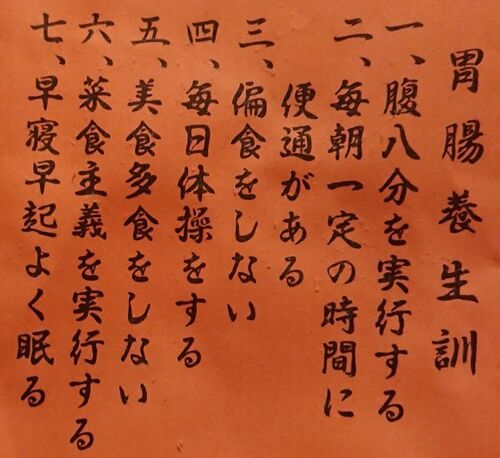 胃腸養生訓
一、腹八分を実行する
二、毎朝一定の時間に
便通がある
三、偏食をしない
四、毎日体操をする
五、美食多食をしない
六、菜食主義を実行する
七、早寝早起よく眠る